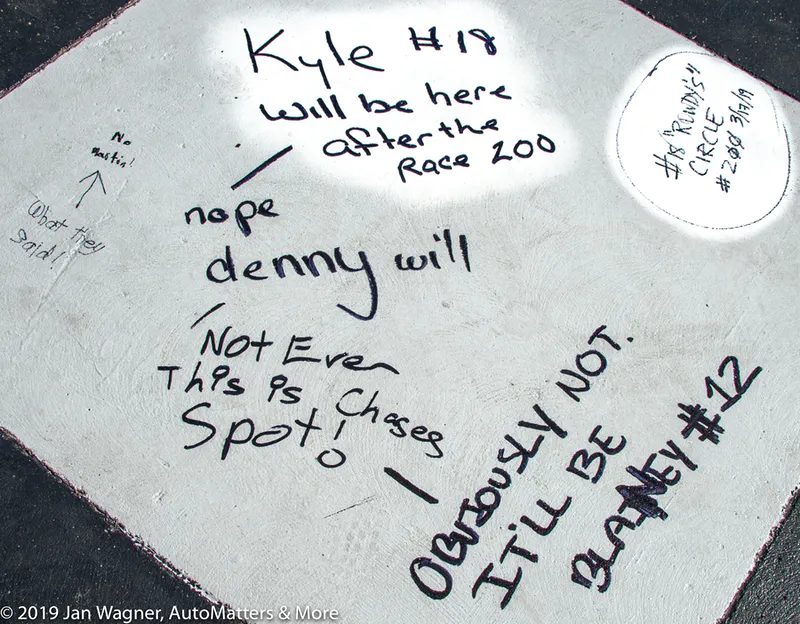 Kyle #18
will be here
after the
Race 200
#18 "ROWDY'S"
CIRCLE
#200 3/17/19
No
Martin!
What they
said!
nope
denny will
Not Ever
This is Chases
Spot!
OBVIOUSLY NOT.
IT'LL BE
BLANEY #12
© 2019 Jan Wagner, AutoMatters & More